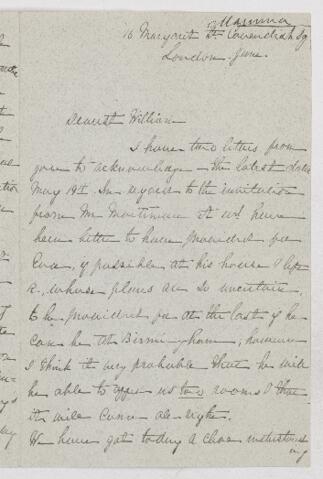 Mamma
16 Margaret St. Cavendish Sq
London. June.
Dearest William
I have two letters from
you to acknowledge – the latest date
May 19th. In regard to the invitation
from Mr Martineau it wd. have
been better to have provided for
if possible at his house & left
whose plans are so uncertain,
to be provided for at the last if he
can be at Birmingham; however
I think it very probable that he will
be able to offer us two rooms & that
it will come all right.
We have got today a
ing